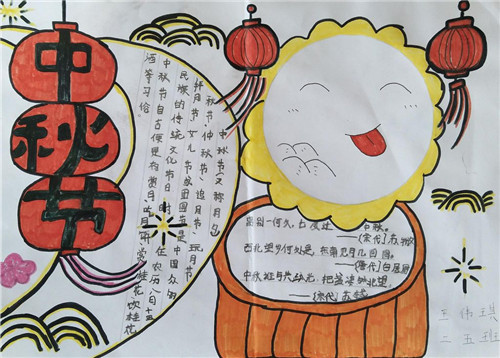 中秋节
中秋节(又称月夕、
秋节、仲秋节、追月节、玩月节
拜月节、女儿节或团圆节是中国众多
民族的传统文化节日时在农历八月十五
中秋节自古便有赏月吃月饼赏桂花饮桂花
酒等习俗
(宋代)苏轼
西北望乡何处是,东南见月几回圆。
——(唐代)白居易
中秋谁与共孤光,把盏凄然北望。
——(宋代)苏轼
王伟琪
二五班